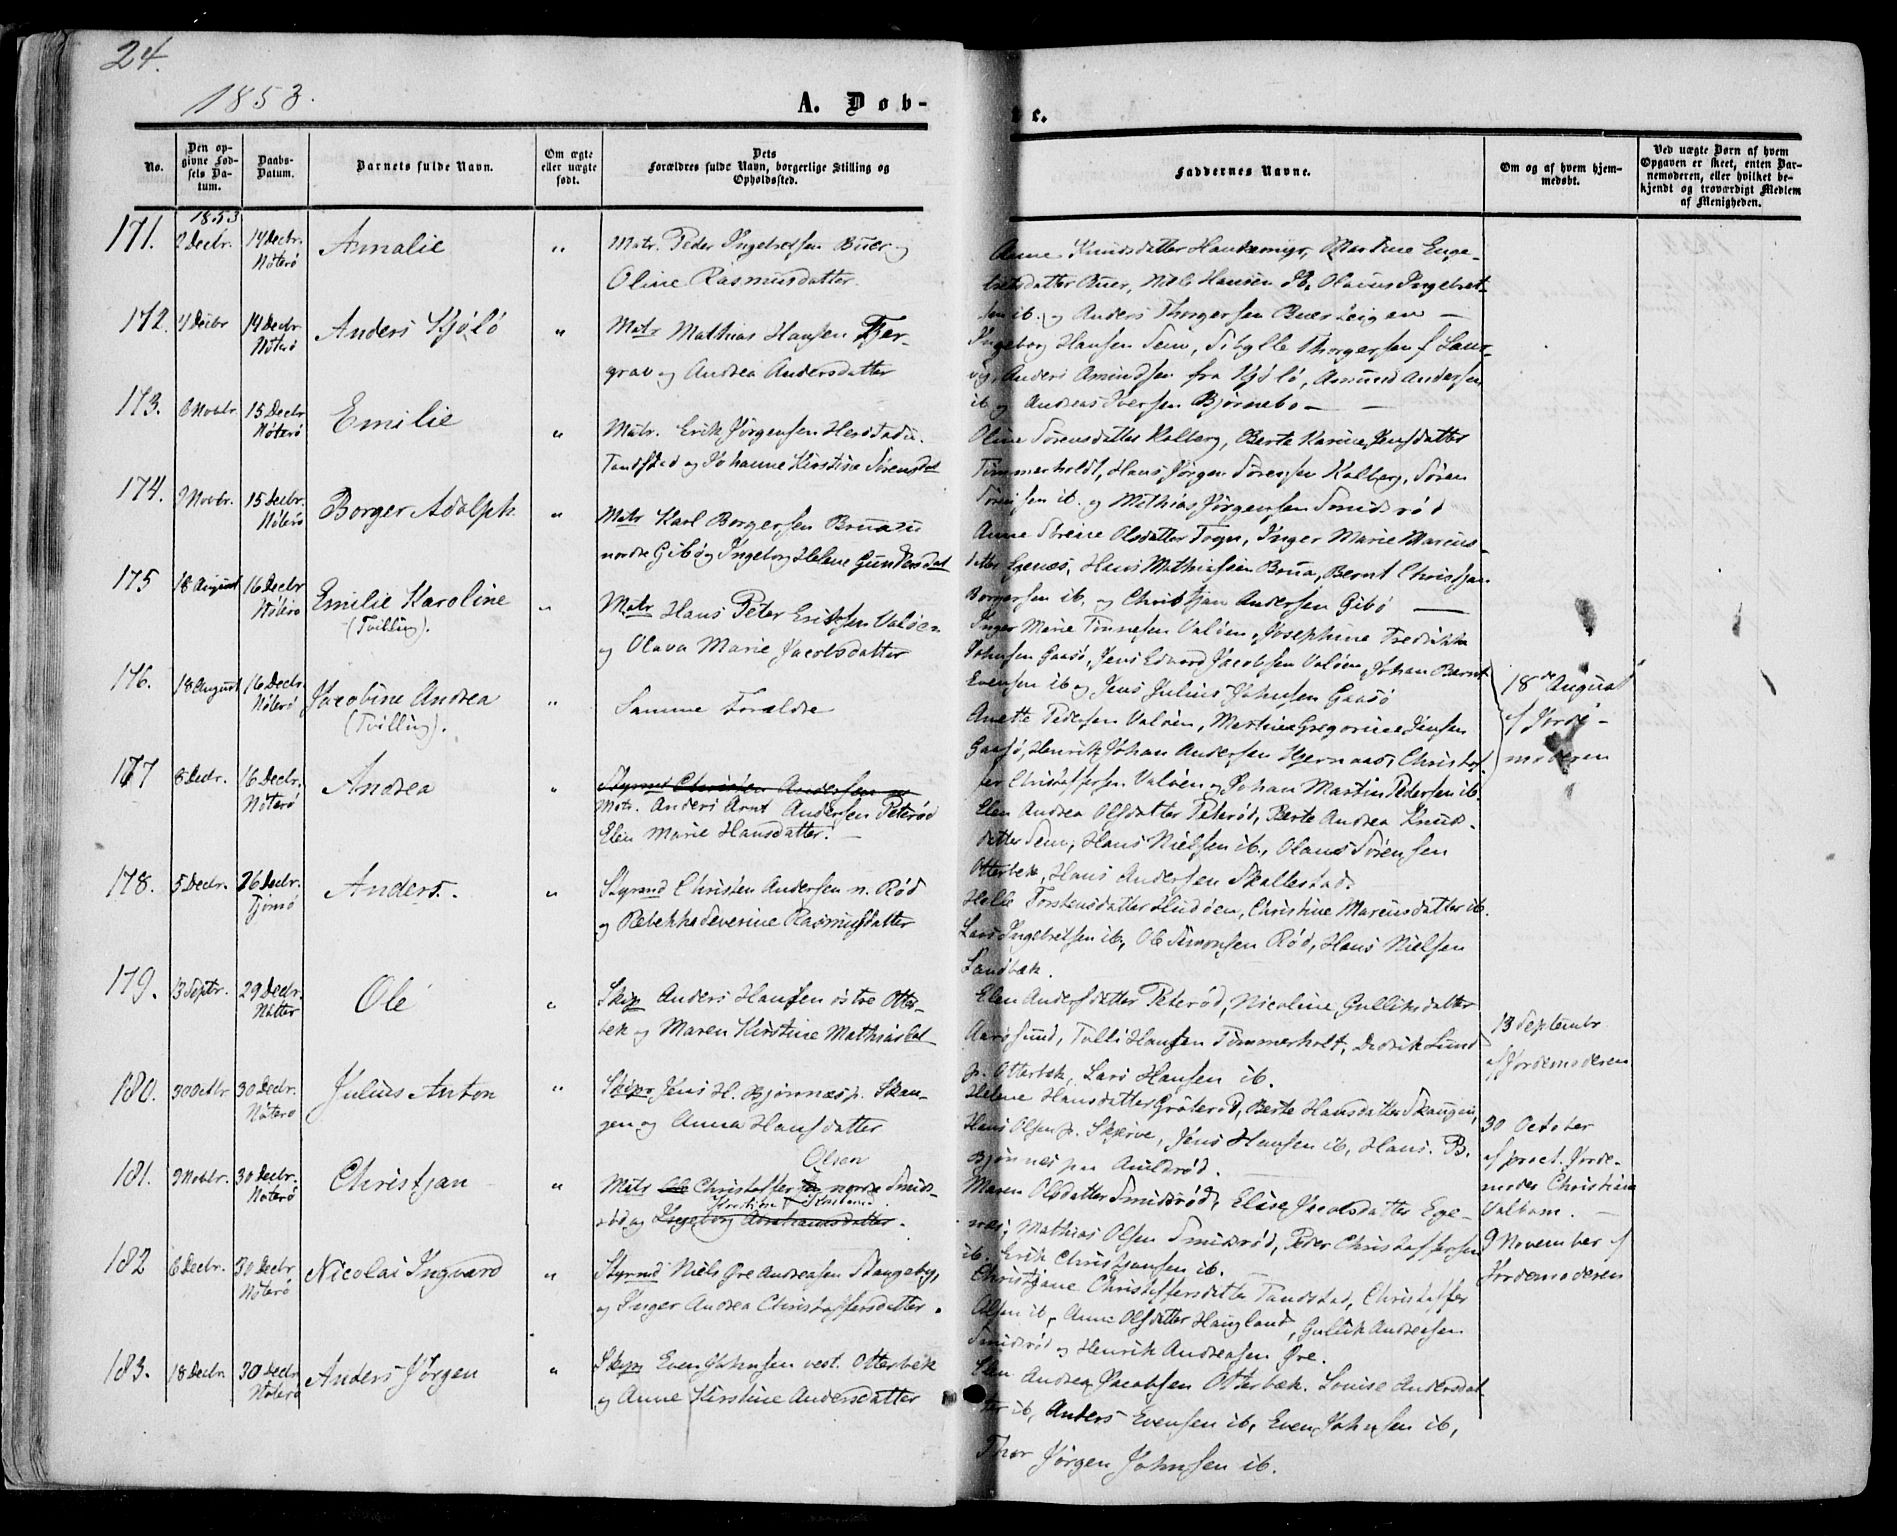 24.
1853.
A. Døb-
te.
No.
Den opgivne Fødsels Datum.
Daabs-Datum.
Barnets fulde Navn.
Om ægte eller uægte født.
Dets Forældres fulde Navn, borgerlige Stilling og Opholdssted.
Faddernes Navne.
Om og af hvem hjemmedøbt.
Ved uægte Børn af hvem Opgaven er skeet, enten Barnemoderen, eller hvilket bekjendt og troværdigt Medlem af Menigheden.
1853
171. 2 Decbr. 14 Decbr. Nøterø Amalie " Matr. Peder Ingebretsen Buer og
Oline Rasmusdatter.
Anne Knudsdatter Martine Enge-
bretsdatter Buer, Niels Hansen ib, Olavus Ingebret-
sen ib. og Anders Thorgersen Buer Leigen —
172. 4 Decbr 14 Decbr Nøterø Anders Kjølø " Matr Mathias Hansen
og Andrea Andersdatter
Ingeborg Hansen Sem, Sibylle Thorgersen f Laur-
vig, Anders Amundsen fra Kjølø, Amund Andersen
ib og Andreas Iversen Bjørnebo —
173. 6 Novbr. 15 Decbr Nøterø Emilie " Matr. Erik Jørgensen
og Johanne Kirstine Sørensdat
Oline Sørensdatter Kolberg, Berte Karine Jensdatter
Tømmerholdt, Hans Jørgen Sørensen Kolberg, Søren
Sørensen ib. og Mathias Jørgensen Smidsrød
174. 9 Novbr. 15 Decbr. Nøterø Borger Adolph " Matr Karl Borgersen
nordre Gibø og Ingeborg Helene Gundersdat
Anne Sørine Olsdatter Togn, Inger Marie Marcus-
datter Hans Mathiesen Brua, Bernt Christian
Borgersen ib. og Christjan Andersen Gibø —
175 18 August 16 Decbr Nøterø Emilie Karoline
(Tvilling).
" Matr Hans Peter Eriksen Valøen
og Olava Marie Jacobsdatter
Inger Marie Tønnesen Valøen, Josephine Fredrikke
Johnsen Gaasø, Jens Edvard Jacobsen Valøen, Johan Bernt
Evensen ib og Jens Julius Johnsen Gaasø
176. 18 August 16 Decbr. Nøterø Jacobine Andrea
(Tvilling).
" Samme Forældre
Anette Pedersen Valøen, Martine Gregorine Jensen
Gaasø, Henrik Johan Andersen Hjernaas, Christof-
fer Christoffersen Valøen og Johan Martin Pedersen ib.
18de August
af Jorde-
moderen
177 8 Decbr. 16 Decbr. Nøterø Andrea " Styrmd Christen Andersen
Matr. Anders Arnt Andersen Peterød
Elen Marie Hansdatter. —
Elen Andrea Olsdatter Peterød, Berte Andrea Knuds-
datter Sem, Hans Nielsen ib., Olaus Sørensen
Otterbek, Hans Andersen Skallestad.
178. 5 Decbr. 26 Decbr. Tjømø Anders. " Styrmd Christen Andersen n. Rød
og Rebekka Severine Rasmusdatter
Helie Torstensdatter Hudøen, Christine Marcusdatter ib.
Lars Ingebretsen ib, Ole Simonsen Rød, Hans Nielsen
Sandbæk.
179. 13 Septr. 29 Decbr. Nøtter Ole " Skip Anders Hansen østre Otter-
bek og Maren Kirstine Mathiasdat
Elen Andersdatter Peterød, Nicoline Gulliksdatter
Aarøsund, Tolli Hansen Tømmerholt, Dedrik Lund
p. Otterbek, Lars Hansen ib.
13 Septembr
af Jordemoderen
180. 30 Octbr. 30 Decbr. Nøterø Julius Anton " Skipr Jens H. Bjønnæs p. Skau-
gen og Anna Hansdatter
Helene Hansdatter Grøterød, Berte Hansdatter Skaugen,
Hans Olsen p. Skjerve, Jens Hansen ib, Hans B.
Bjønnes paa Auldrød.
30 October
af pract. Jorde-
moder Christiane
Valbom. —
181. 9 Novbr. 30 Decbr. Nøterø Christjan " Matr Ole Christoffersen Olsen nordre Smids-
rød og Ingeborg Abrahamsdatter.
Maren Olsdatter Smidsrød, Elise Jacobsdatter Ege-
næs, Mathias Olsen Smidsrød, Peder Christoffersen
ib. Erik Christjansen ib.
9 November af
Jordemoderen
182 6 Decbr. 30 Decbr Nøterø Nicolai Ingvard " Styrmd Niels Øre Andreasen Skangeby,
og Inger Andrea Christoffersdatter.
Christjane Christoffersdatter Christoffer
Olsen ib, Anne Olsdatter Haugland, Gullik Andreasen
Smidsrød og Henrik Andreasen Øre.
183. 18 Decbr. 30 Decbr Nøterø Anders Jørgen " Skipr Even Johnsen vest. Otterbek
og Anne Kirstine Andersdatter
Elen Andrea Jacobsen Otterbæk. Louise Andersdat-
ter ib, Anders Evensen ib, Even Johnsen ib,
Thor Jørgen Johnsen ib.